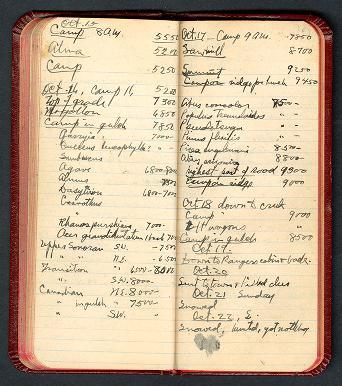 Oct. 12
Camp 8 A.M. 5550
Alma 5200
Camp 5250
Oct. 14, Camp 16 5200
Top of grade 7300
Mogollon 6850
Camp in gulch 7850
Garrya 7000-
Quercus hypophylla? "
Sambucus
Agave 6800-8000
Alnus
Dasylirion 6800-7000
Ceanothus
"
Rhamus purshiana 7000-
Acer grandidentatum
Upper Sonoran SW. -7500
" " N.E. -6500
Transition " 6500-8000
" S.W. 8000-
Canadian N.E. 8000-
" in gulch " 7500-
" S.W.
Oct 17 - Camp 9 A.M. 7850
Sawmill 8700
Summit 9250
Camp on ridge for lunch 9450
Abies concolor 8500-
Populus tremuloides "
Pseudotsuga "
Pinus flexilis "
Picea engelmanni 8500-
Abies arizonica 8800-
Highest part of road 9300
Camp on ridge 9000
Oct 18 down to creek
Camp 9000
" wagons "
Camp in gulch 8500
Oct 19
Down to Rangers cabin & back.
Oct. 20
Sent to town
Oct. 21 Sunday
Snowed
Oct. 22,
Snowed, hunted, got nothing.